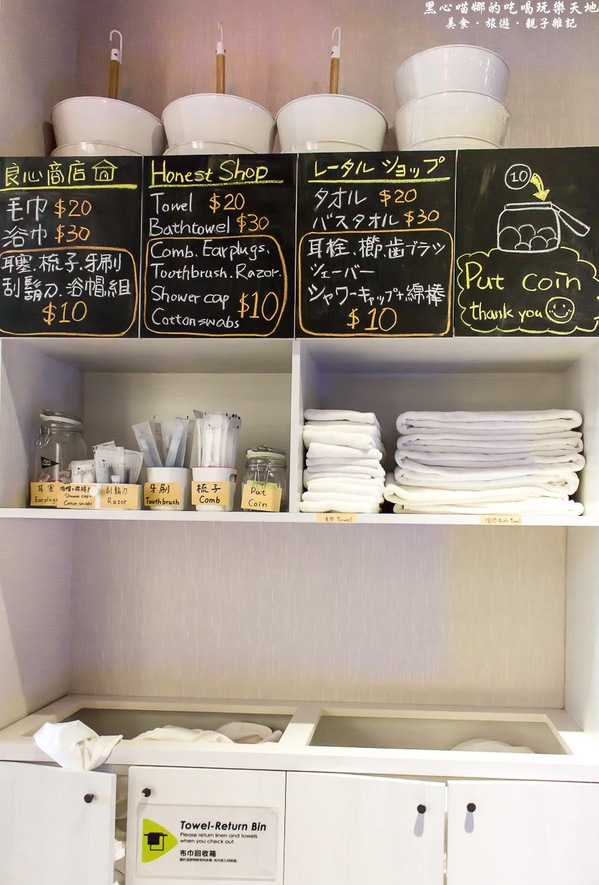 黑心喵娜的吃喝玩樂天地
美食·旅遊·親子雜記
良心商店
毛巾 $20
浴巾 $30
耳塞.梳子.牙刷
刮鬍刀.浴帽組
$10
Honest Shop
Towel $20
Bathtowel $30
Comb. Earplugs.
Toothbrush. Razor.
Shower cap $10
Cotton swabs
レータル ショップ
タオル $20
バスタオル $30
耳栓.櫛.歯ブラシ
シェーバー
シャワーキャップ+綿棒
$10
10
Put coin
thank you
耳塞
Earplugs
Shower caps
Cotton swabs
刮鬍刀
Razor
牙刷
Toothbrush
梳子
Comb
Put
Coin
毛巾 Towel
浴巾 Bath Towel
Towel-Return Bin
Please return linen and towels
when you check out.
布巾回收箱